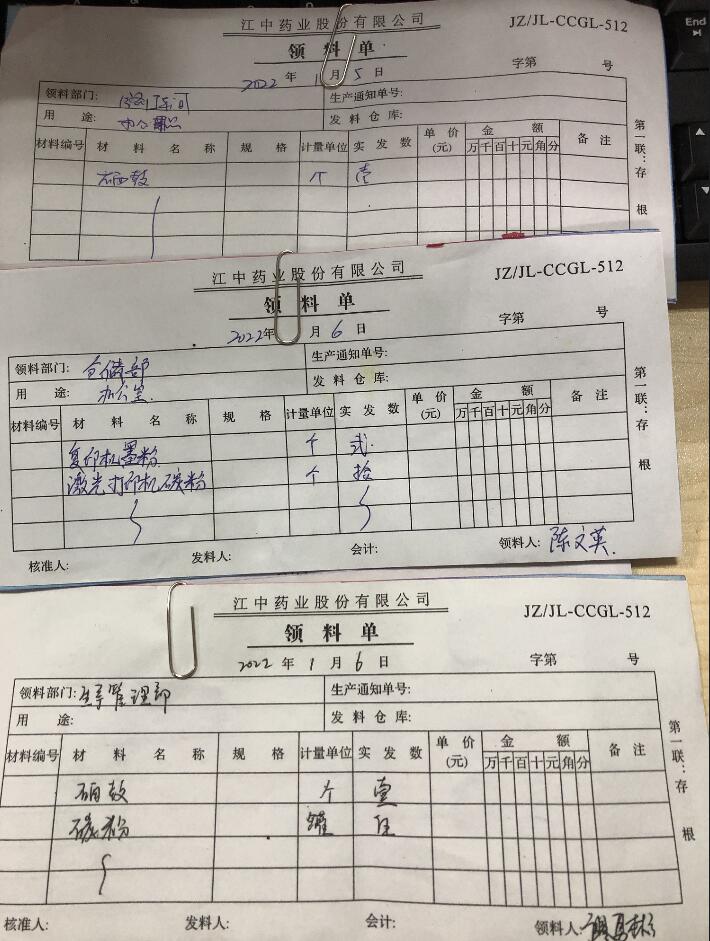 End
江中药业股份有限公司
JZ/JL-CCGL-512
领料单
字第 号
2022 年 1 月 5 日
领料部门: 生产通知单号:
用 途: 办公用品 发料仓库:
材料编号 材料名称 规格 计量单位 实发数 单价(元) 金额 备注
万千百十元角分
硒鼓 个 壹
第一联:存根
江中药业股份有限公司
JZ/JL-CCGL-512
领料单
字第 号
2022年 月 6 日
领料部门: 仓储部 生产通知单号:
用 途: 办公室. 发料仓库:
材料编号 材料名称 规格 计量单位 实发数 单价(元) 金额 备注
万千百十元角分
复印机墨粉 个 贰.
激光打印机碳粉 个 拾
第一联:存根
核准人: 发料人: 会计: 领料人: 陈文英.
江中药业股份有限公司
JZ/JL-CCGL-512
领料单
字第 号
2022 年 1 月 6 日
领料部门: 生产管理部 生产通知单号:
用 途: 发料仓库:
材料编号 材料名称 规格 计量单位 实发数 单价(元) 金额 备注
万千百十元角分
硒鼓 个 壹
碳粉 罐 伍
第一联:存根
核准人: 发料人: 会计: 领料人: